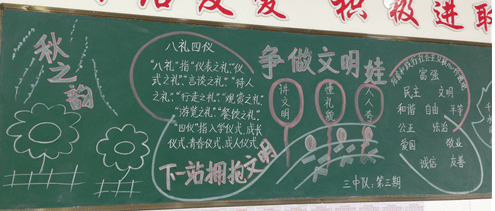 积极进
秋之韵
八礼四仪
"八礼"指"仪表之礼""仪
式之礼""言谈之礼""待人
之礼""行走之礼""观赏之礼"
"游览之礼""餐饮之礼"
"四仪"指入学仪式、成长
仪式、青春仪式、成人仪式
下一站拥抱文明
争做文明娃
讲文明
懂礼貌
富强
民主 文明
和谐 自由 平等
公正 法治
爱国 敬业
诚信 友善
三中队:第三期